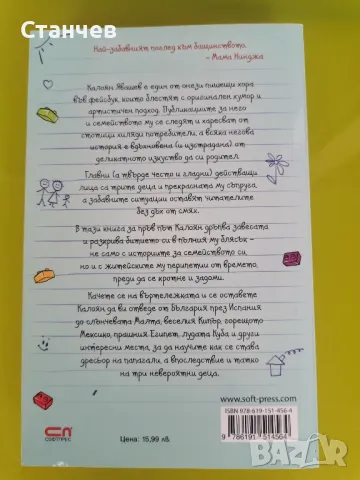 Станчев
Най-забавният поглед към бащинството.
- Мама Нинджа
Калоян Явашев е един от онези пишещи хора
във фейсбук, които блестят с оригинален хумор и
артистичен подход. Публикациите за него
и семейството му се следят и харесват от
стотици хиляди потребители, а всяка негова
история е вдъхновена (и изстрадана) от
деликатното изкуство да си родител.
Главни (а твърде често и гладни) действащи
лица са трите деца и прекрасната му съпруга,
а забавните ситуации оставят читателите
без дъх от смях.
В тази книга за пръв път Калоян дръпва завесата
и разкрива битието си в пълния му блясък -
не само с историите за семейството си,
но и с житейските му перипетии от времето,
преди да се кротне и задоми.
Качете се на въртележката и се оставете
Калоян да ви отведе от България през Испания
до слънчевата Малта, веселия Кипър, горещото
Мексико, прашния Египет, лудата Куба и други
интересни места, за да научите как се става
дресьор на папагали, а впоследствие и татко
на три невероятни деца.
www.soft-press.com
ISBN 978-619-151-456-4
9 786191 514564
СОФТПРЕС
Цена: 15,99 лв.
BAZAR